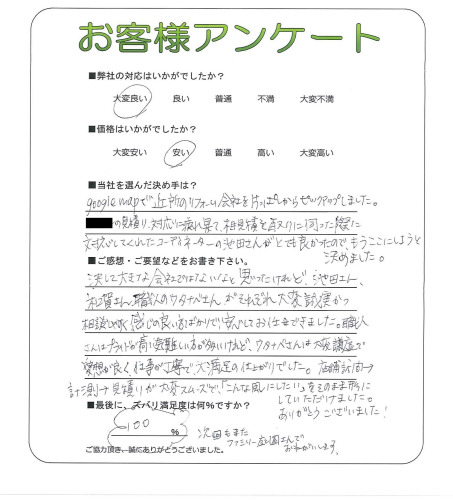 お客様アンケート
■弊社の対応はいかがでしたか？
大変良い 良い 普通 不満 大変不満
■価格はいかがでしたか？
大変安い 安い 普通 高い 大変高い
■当社を選んだ決め手は？
google mapで近所のリフォーム会社を片っぱしからピックアップしました。
の見積り、対応に 相見積を取りに伺った際に
対応してくれたコーディネーターの池田さんがとても良かったので、もうここにしようと
決めました。
■ご感想・ご要望などをお書き下さい。
決して大きな会社ではないなと思ったけれど、池田さん、
職人のワタナベさんがそれぞれ大変誠実かつ
相談しやすく感じの良い方ばかりで安心してお任せできました。職人
さんはプライドが高く気難しい方が多いけれど、ワタナベさんは大変謙虚で
愛想が良く、仕事が丁寧で大満足の仕上がりでした。店舗訪問→
計測→見積りが大変スムーズで、「こんな風にしたい」をそのまま形に
していただけました。
ありがとうございました！
■最後に、ズバリ満足度は何％ですか？
100 ％
次回もまた
ファミリー庭園さんで
お願いします。
ご協力頂き、誠にありがとうございました。